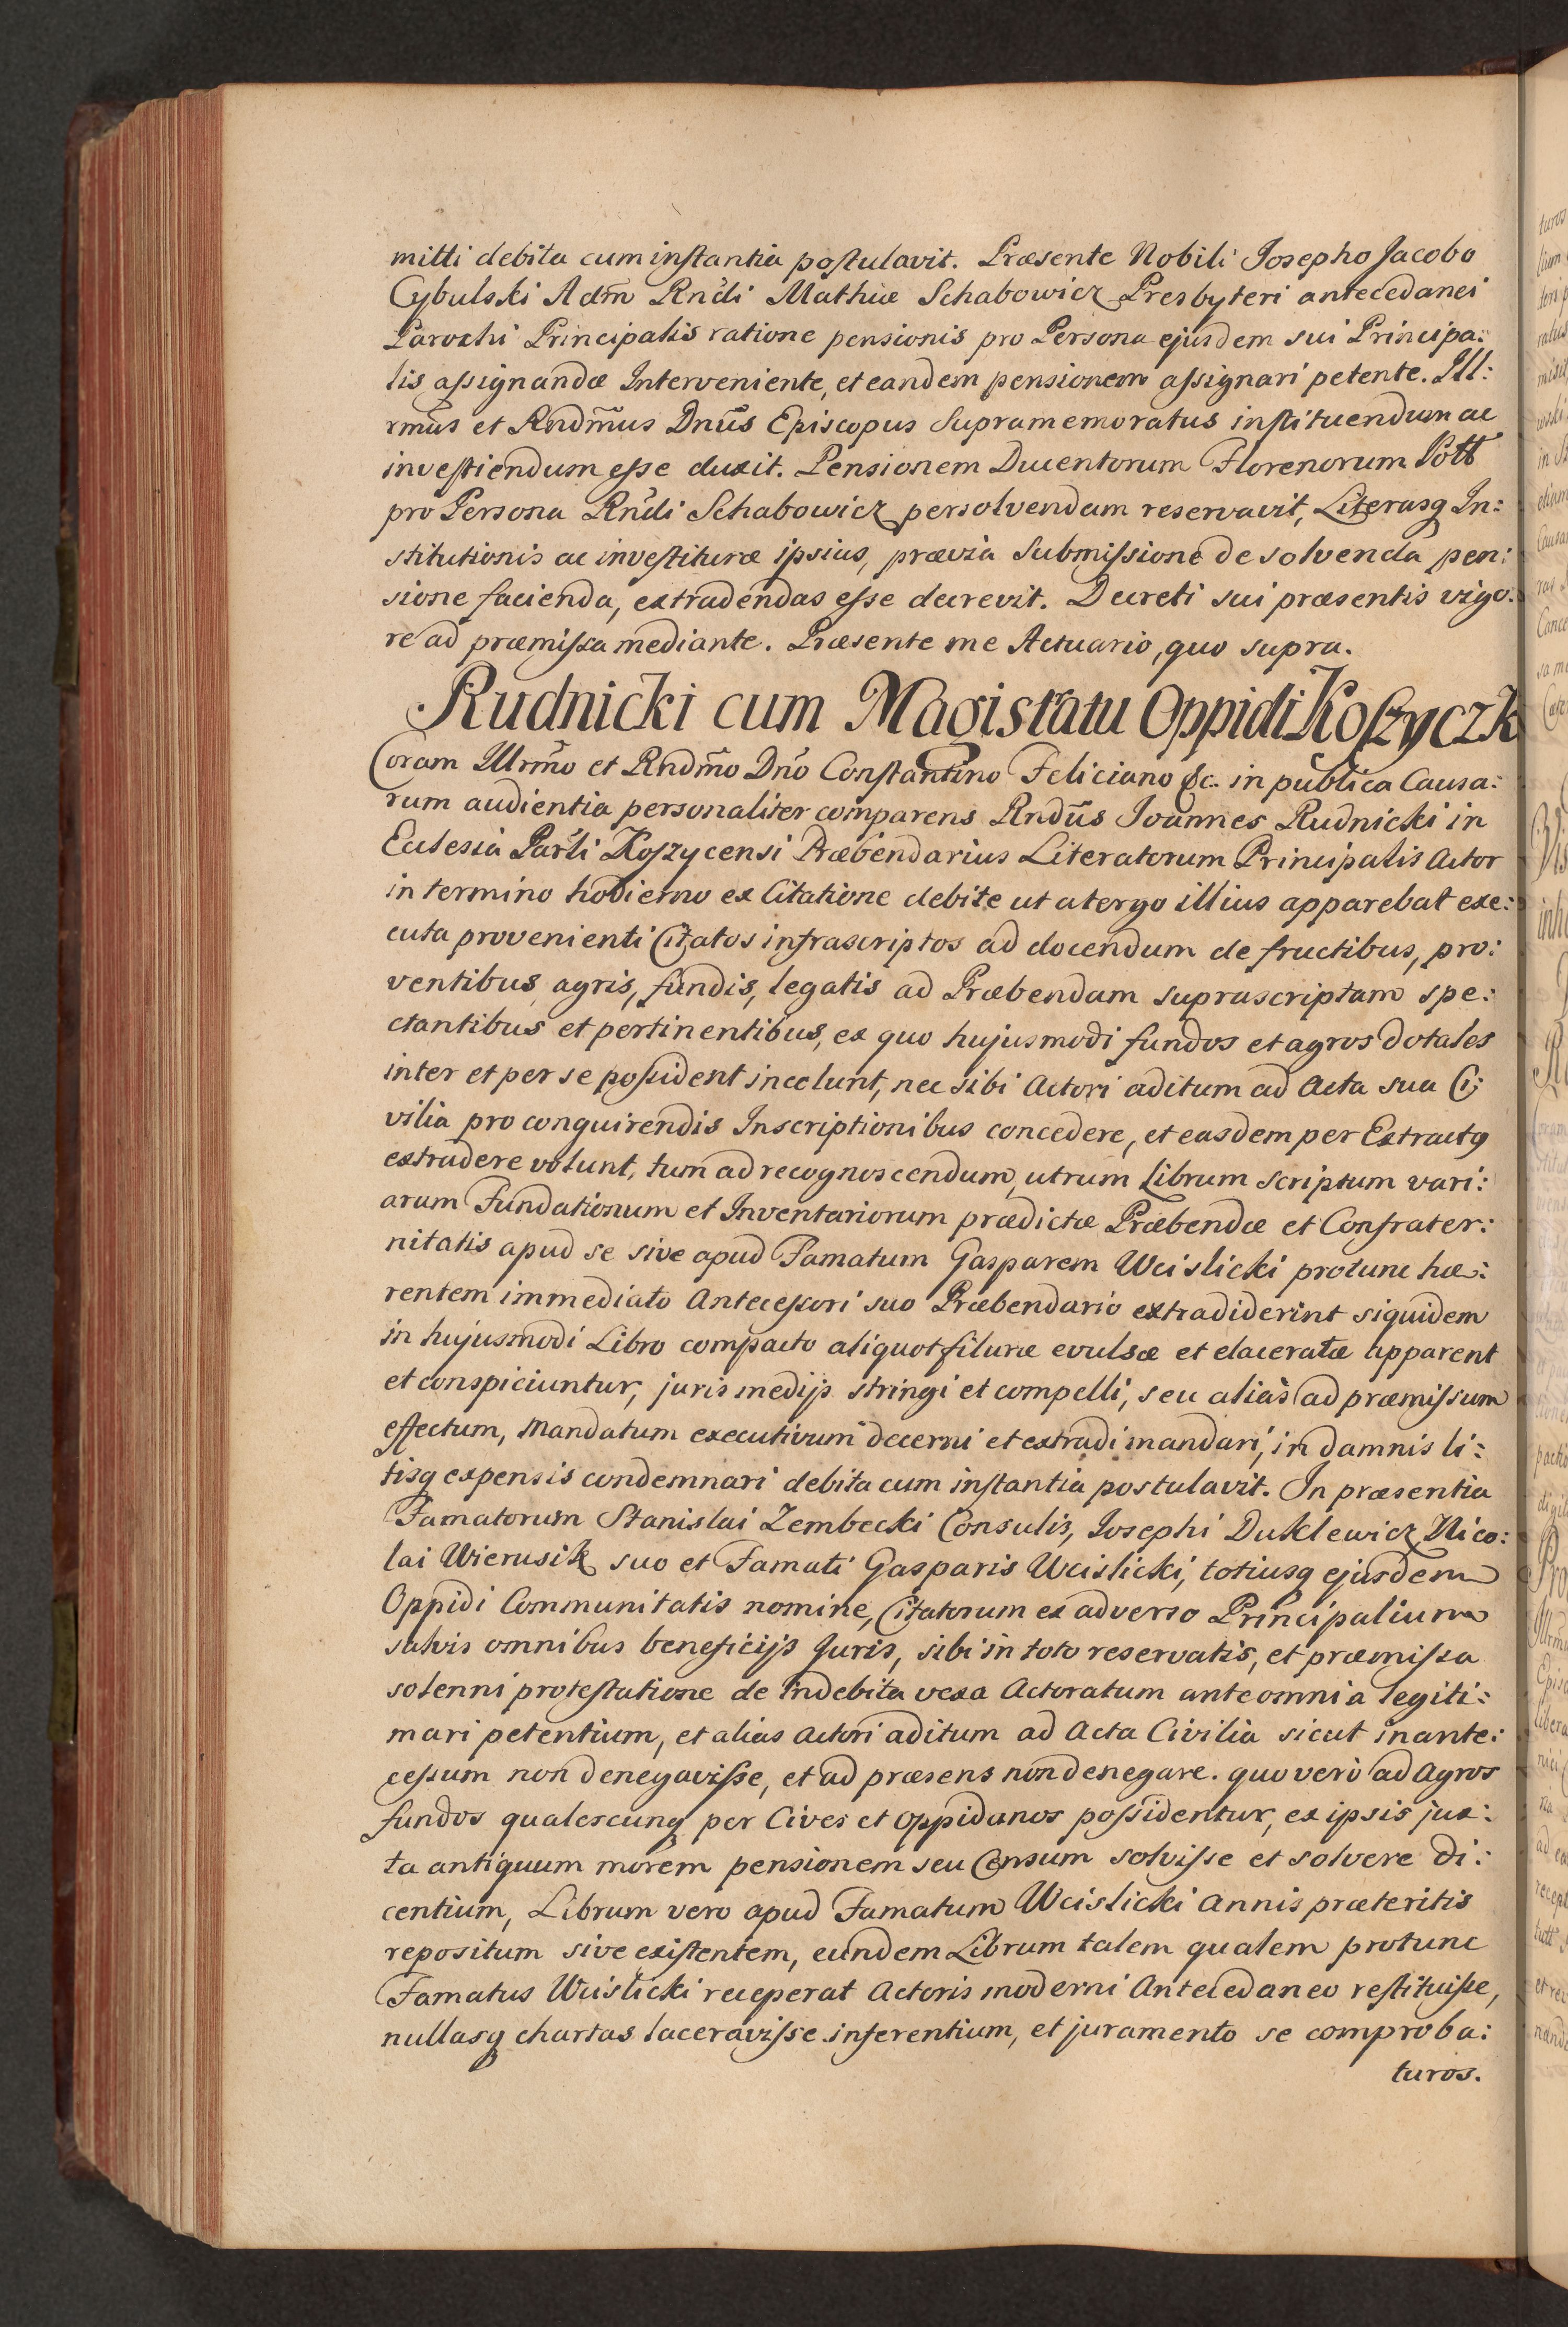 mitti debita cum instantia postulavit. Præsente Nobili Josepho Jacobo
Cybulski Adm̃ Rnďi Mathiæ Schabowicz Presbyteri antecedanei
Parochi Principalis ratione pensionis pro Persona ejusdem sui Principa:
lis assignandæ Interveniente, et eandem pensionem assignari petente. Ill:
rmũs et Rndmũs Dnũs Episcopus Supramemoratus instituendum ac
investiendum esse duxit. Pensionem Ducentorum Florenorum Połł
pro Persona Rnďi Schabowicz persolvendam reservavit, Literasq In:
stitutionis ac investituræ ipsius, prævia Submissione de solvenda pen:
sione facienda, extradendas esse decrevit. Decreti sui præsentis vigo:
re ad præmissa mediante. Præsente me Actuario, quo supra.
Rudnicki cum Magistratu Oppidi Koszyczk
Coram Illrmõ et Rndmõ Dnõ Constantino Feliciano &c. in publica Causa:
rum audientia personaliter comparens Rndũs Joannes Rudnicki in
Eclesia Parľi Koszycensi Præbendarius Literatorum Principalis Actor
in termino hodierno ex Citatione debite ut a tergo illius apparebat exe:
cuta provenienti Citatos infrascriptos ad docendum de fructibus, pro:
ventibus agris, fundis, legatis ad Præbendam suprascriptam spe:
ctantibus et pertinentibus, ex quo hujusmodi fundos et agros dotales
inter et per se possident incolunt, nec sibi Actori aditum ad Acta sua Ci:
vilia pro conquirendis Inscriptionibus concedere, et easdem per Extractq
extradere volunt, tum ad recognoscendum, utrum Librum scriptum vari:
arum Fundationum et Inventariorum prædictæ Præbendæ et Confrater:
nitatis apud se sive apud Famatum Gasparem Wcislicki protunc hæ:
rentem immediato Antecessori suo Præbendario extradiderint siquidem
in hujusmodi Libro compacto aliquot filuræ evulsæ et elaceratæ apparent
et conspiciuntur, juris medijs stringi et compelli, seu alias ad præmissum
effectum, Mandatum executivum decerni et extradi mandari, in damnis li:
tisq expensis condemnari debita cum instantia postulavit. In præsentia
Famatorum Stanislai Zembecki Consulis, Josephi Duklewicz, Nico:
lai Wierusik suo et Famati Gasparis Wcislicki, totiusq ejusdem
Oppidi Communitatis nomine, Citatorum ex adverso Principalium
salvis omnibus beneficijs Juris, sibi in toto reservatis, et præmissa
solenni protestatione de indebita vexa Actoratum ante omnia legiti:
mari petentium, et alias Actori aditum ad Acta Civilia sicut in ante:
cessum non denegavisse, et ad præsens non denegare. quo verò ad Agros
fundos qualescunq per Cives et oppidanos possidentur, ex ipsis jux:
ta antiquum morem pensionem seu Censum solvisse et solvere di:
centium, Librum vero apud Famatum Wcislicki Annis præteritis
repositum sive existentem, eundem Librum talem qualem protunc
Famatus Wcislicki receperat Actoris moderni Antecedaneo restituisse,
nullasq chartas laceravisse inferentium, et juramento se comproba:
turos.